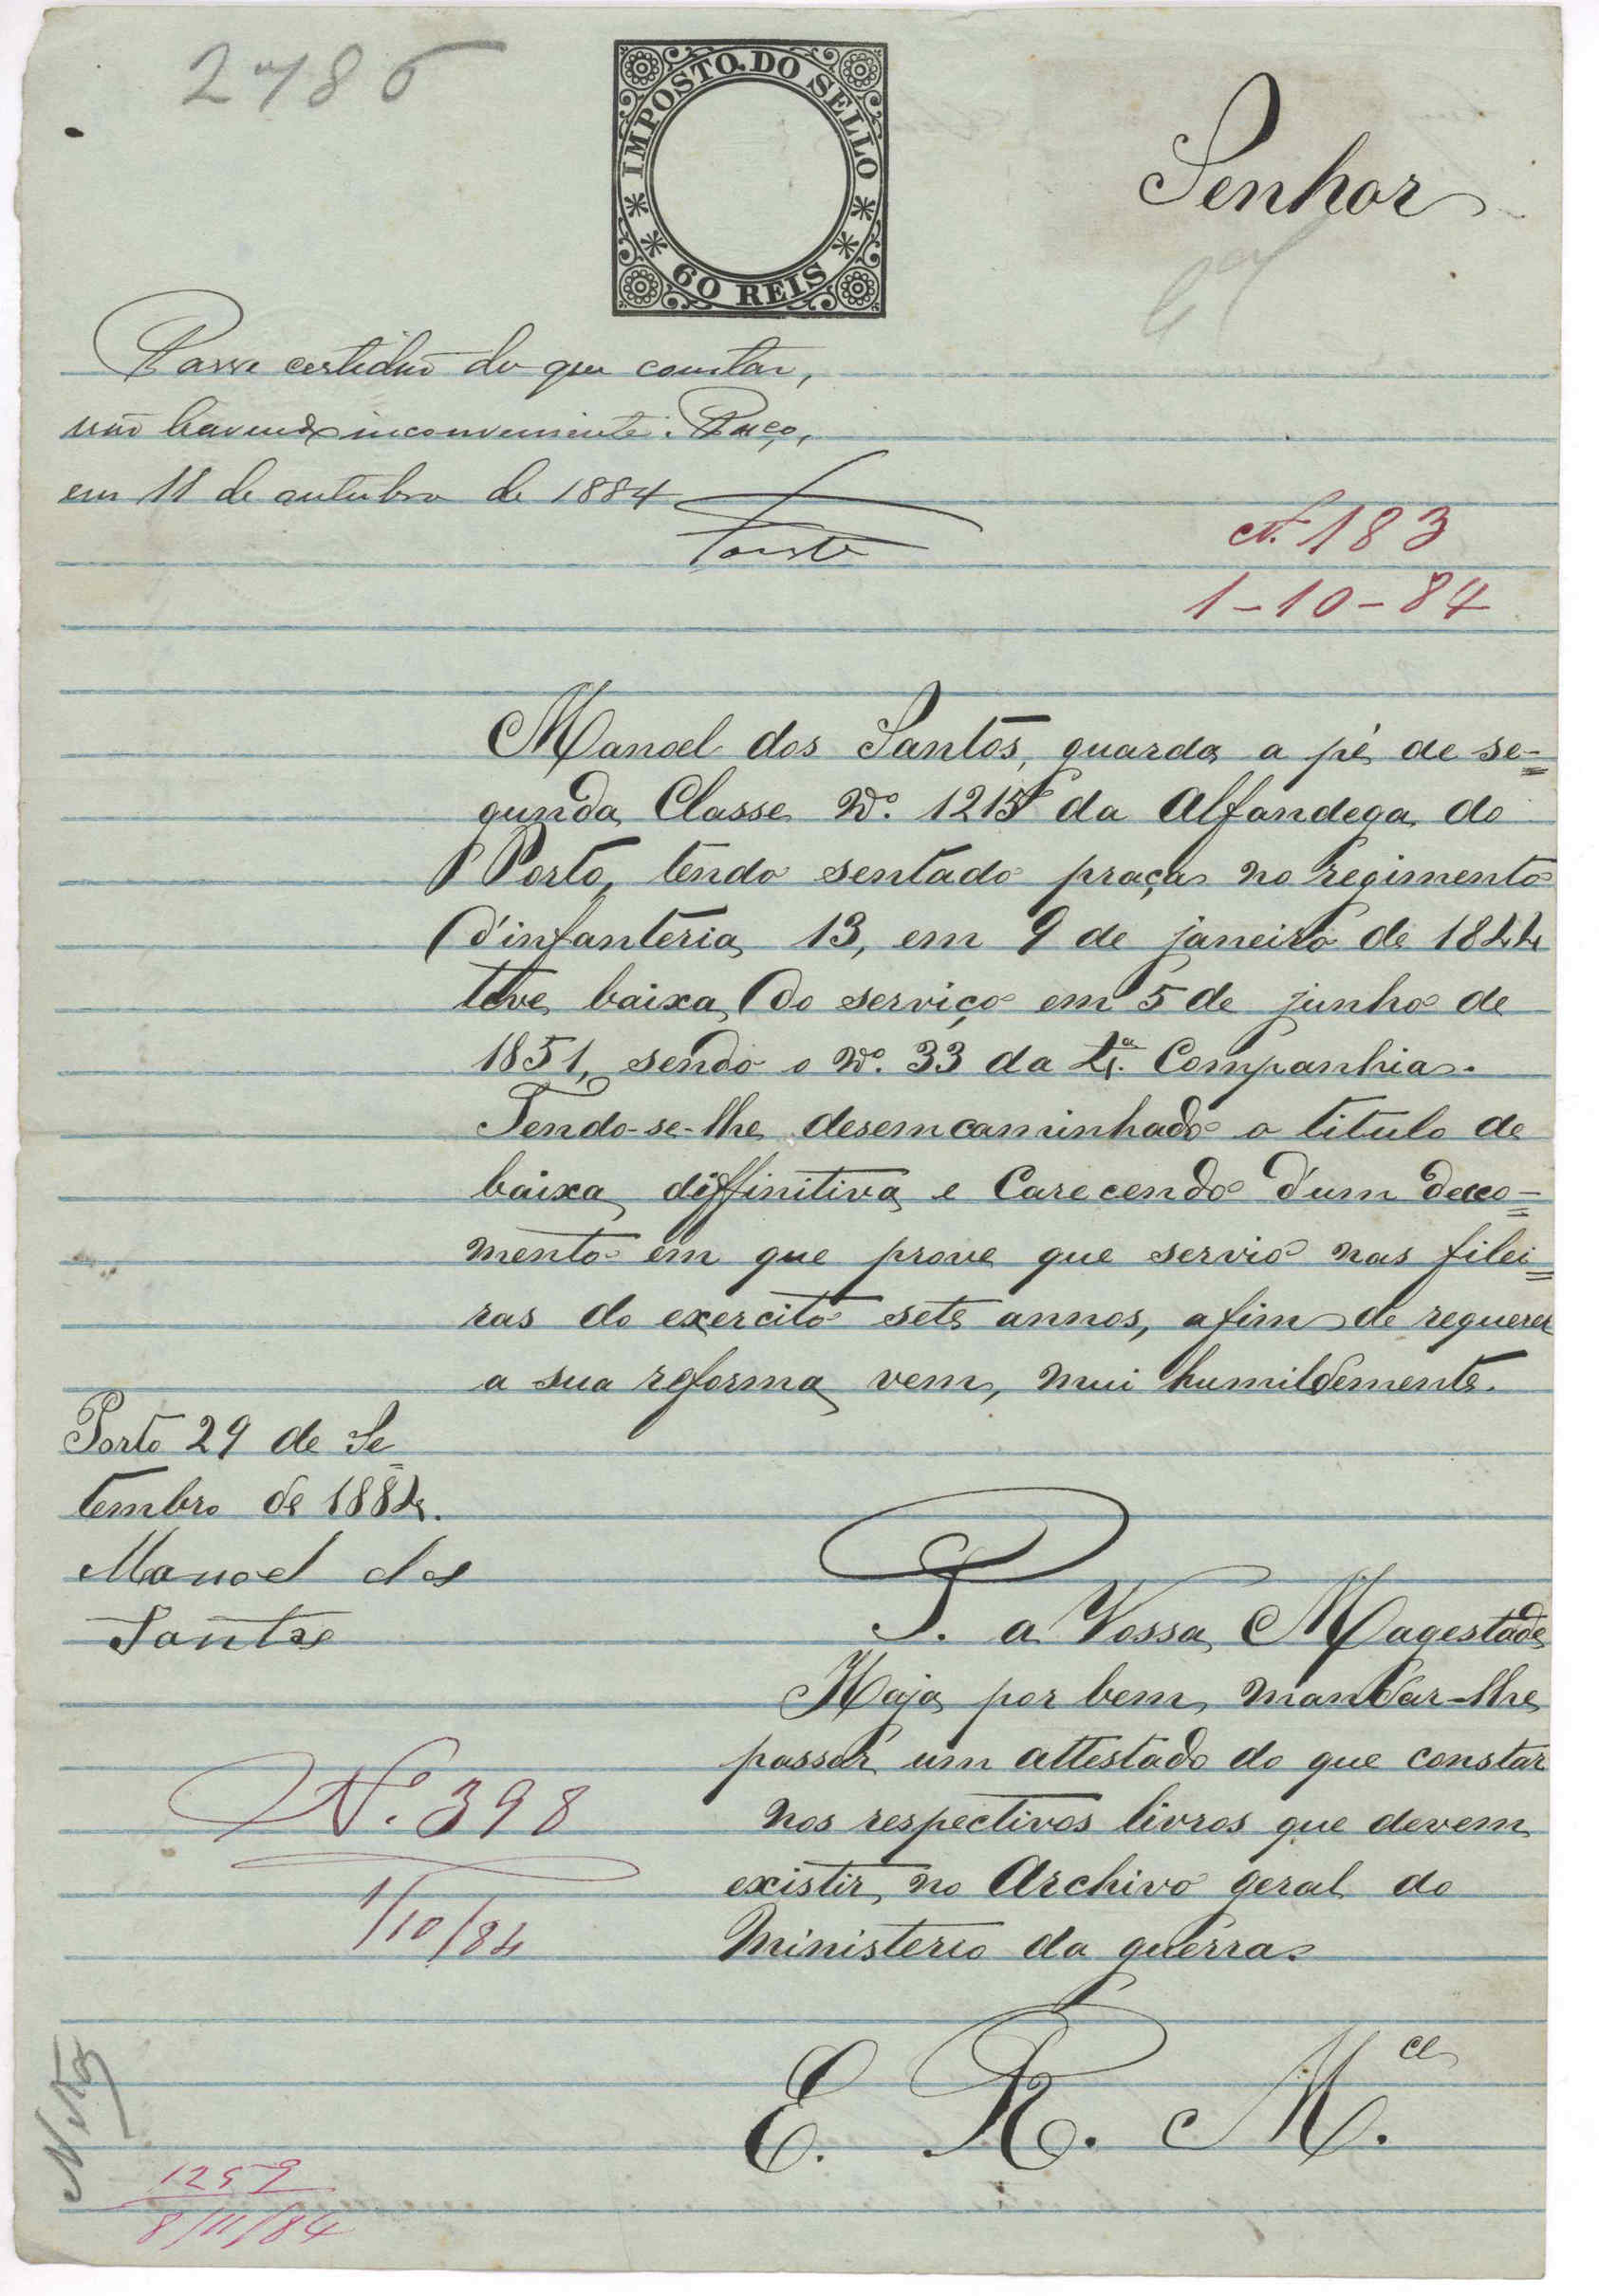 2786
IMPOSTO DO SELLO
60 REIS
Senhor
Passe certidão do que constar,
não havendo inconveniente. Paço,
em 11 de outubro de 1884
Nº 183
1-10-84
Manoel dos Santos, guarda a pé de se-
gunda Classe Nº. 1215 da Alfandega do
Porto, tendo sentado praça no regimento
d'infanteria 13, em 9 de janeiro de 1844
teve baixa do serviço em 5 de junho de
1851, sendo o Nº. 33 da 4ª. Companhia.
Tendo-se-lhe desemcaminhado o titulo de
baixa diffinitiva e Carecendo d'um doco-
mento em que prove que servio nas filei-
ras do exercito sete annos, afim de requerer
a sua reforma vem, mui humildemente.
Porto 29 de Se
tembro de 1884.
Manoel dos
Santos
P. a Vossa Magestade
Haja por bem, mandar-lhe
passar um attestado do que constar
nos respectivos livros que devem
existir no Archivo geral do
Ministerio da guerra.
Nº. 398
1/10/84
E. R. M.ce
1259
8/11/84